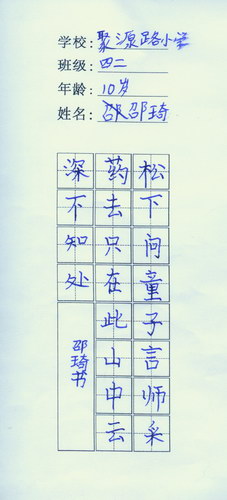 学校：聚源路小学
班级：四二
年龄：10岁
姓名：邵邵琦
松下问童子言师采
药去只在此山中云
深不知处
邵琦书